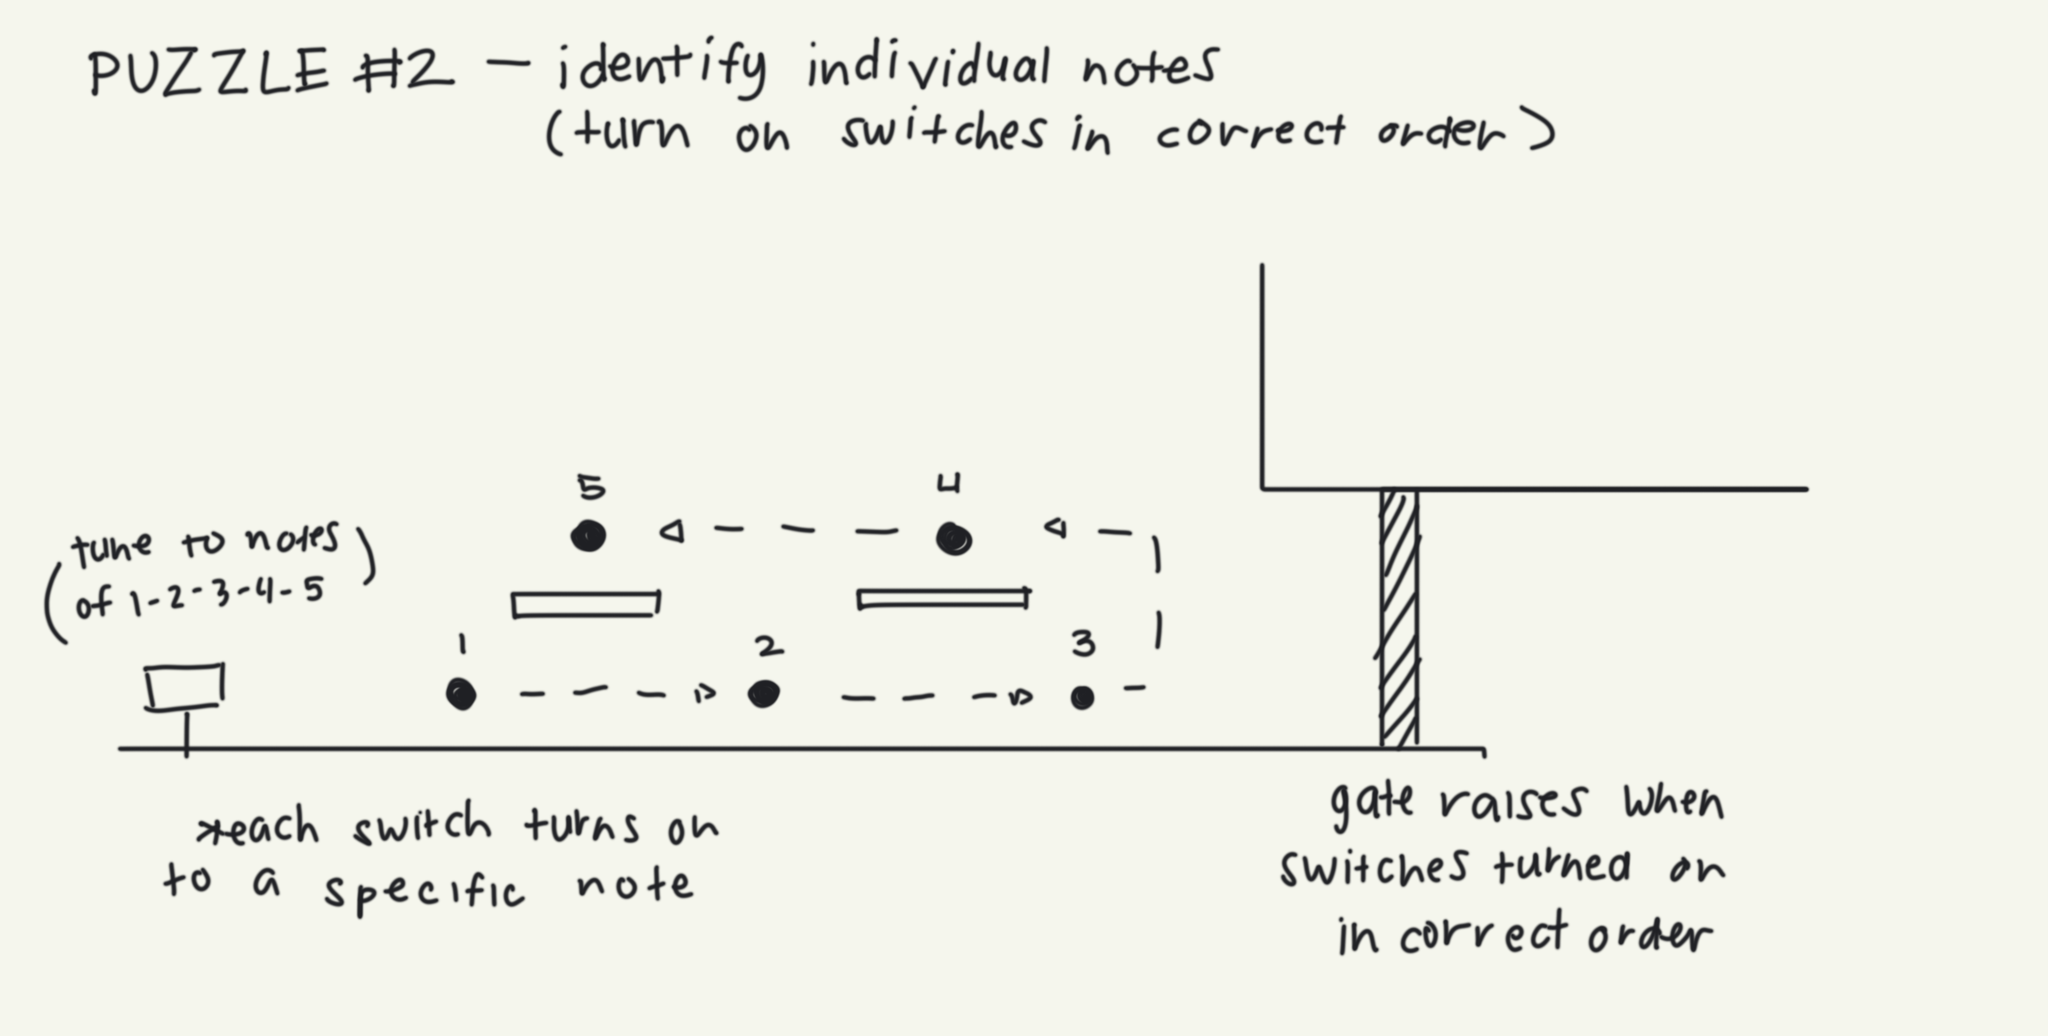 PUZZLE #2 — identify individual notes
(turn on switches in correct order)
5
4
(tune to notes)
of 1-2-3-4-5
1
2
3
*each switch turns on
to a specific note
gate raises when
switches turned on
in correct order